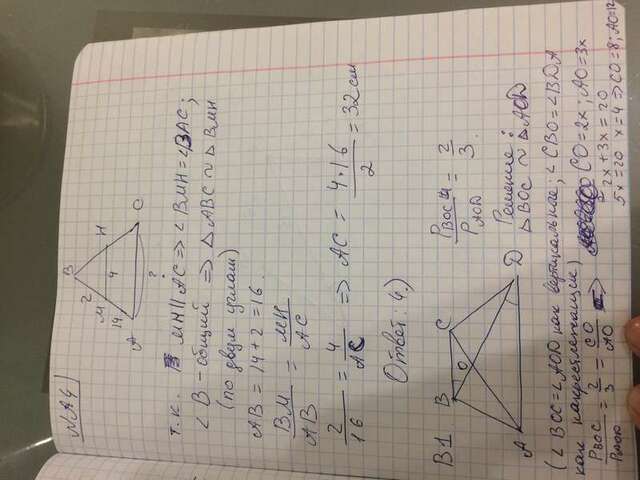 №A4
B
2
M
H
4
14
A
C
?
т.к. MH || AC => ∠BMH = ∠BAC;
∠B - общий => △ABC ~ △BMH
(по двум углам)
AB = 14 + 2 = 16.
BM/AB = MH/AC
2/16 = 4/AC => AC = 4•16/2 = 32 см
Ответ: 4.)
B1
B
C
O
A
D
P BOC / P AOD = 2/3.
Решение:
△BOC ~ △AOD
(∠BOC = ∠AOD как вертикальные; ∠CBO = ∠BDA
как накрестлежащие)
P BOC / P AOD = 2/3 = CO/AO => CO = 2x; AO = 3x
2x + 3x = 20
5x = 20 x = 4 => CO = 8; AO = 12